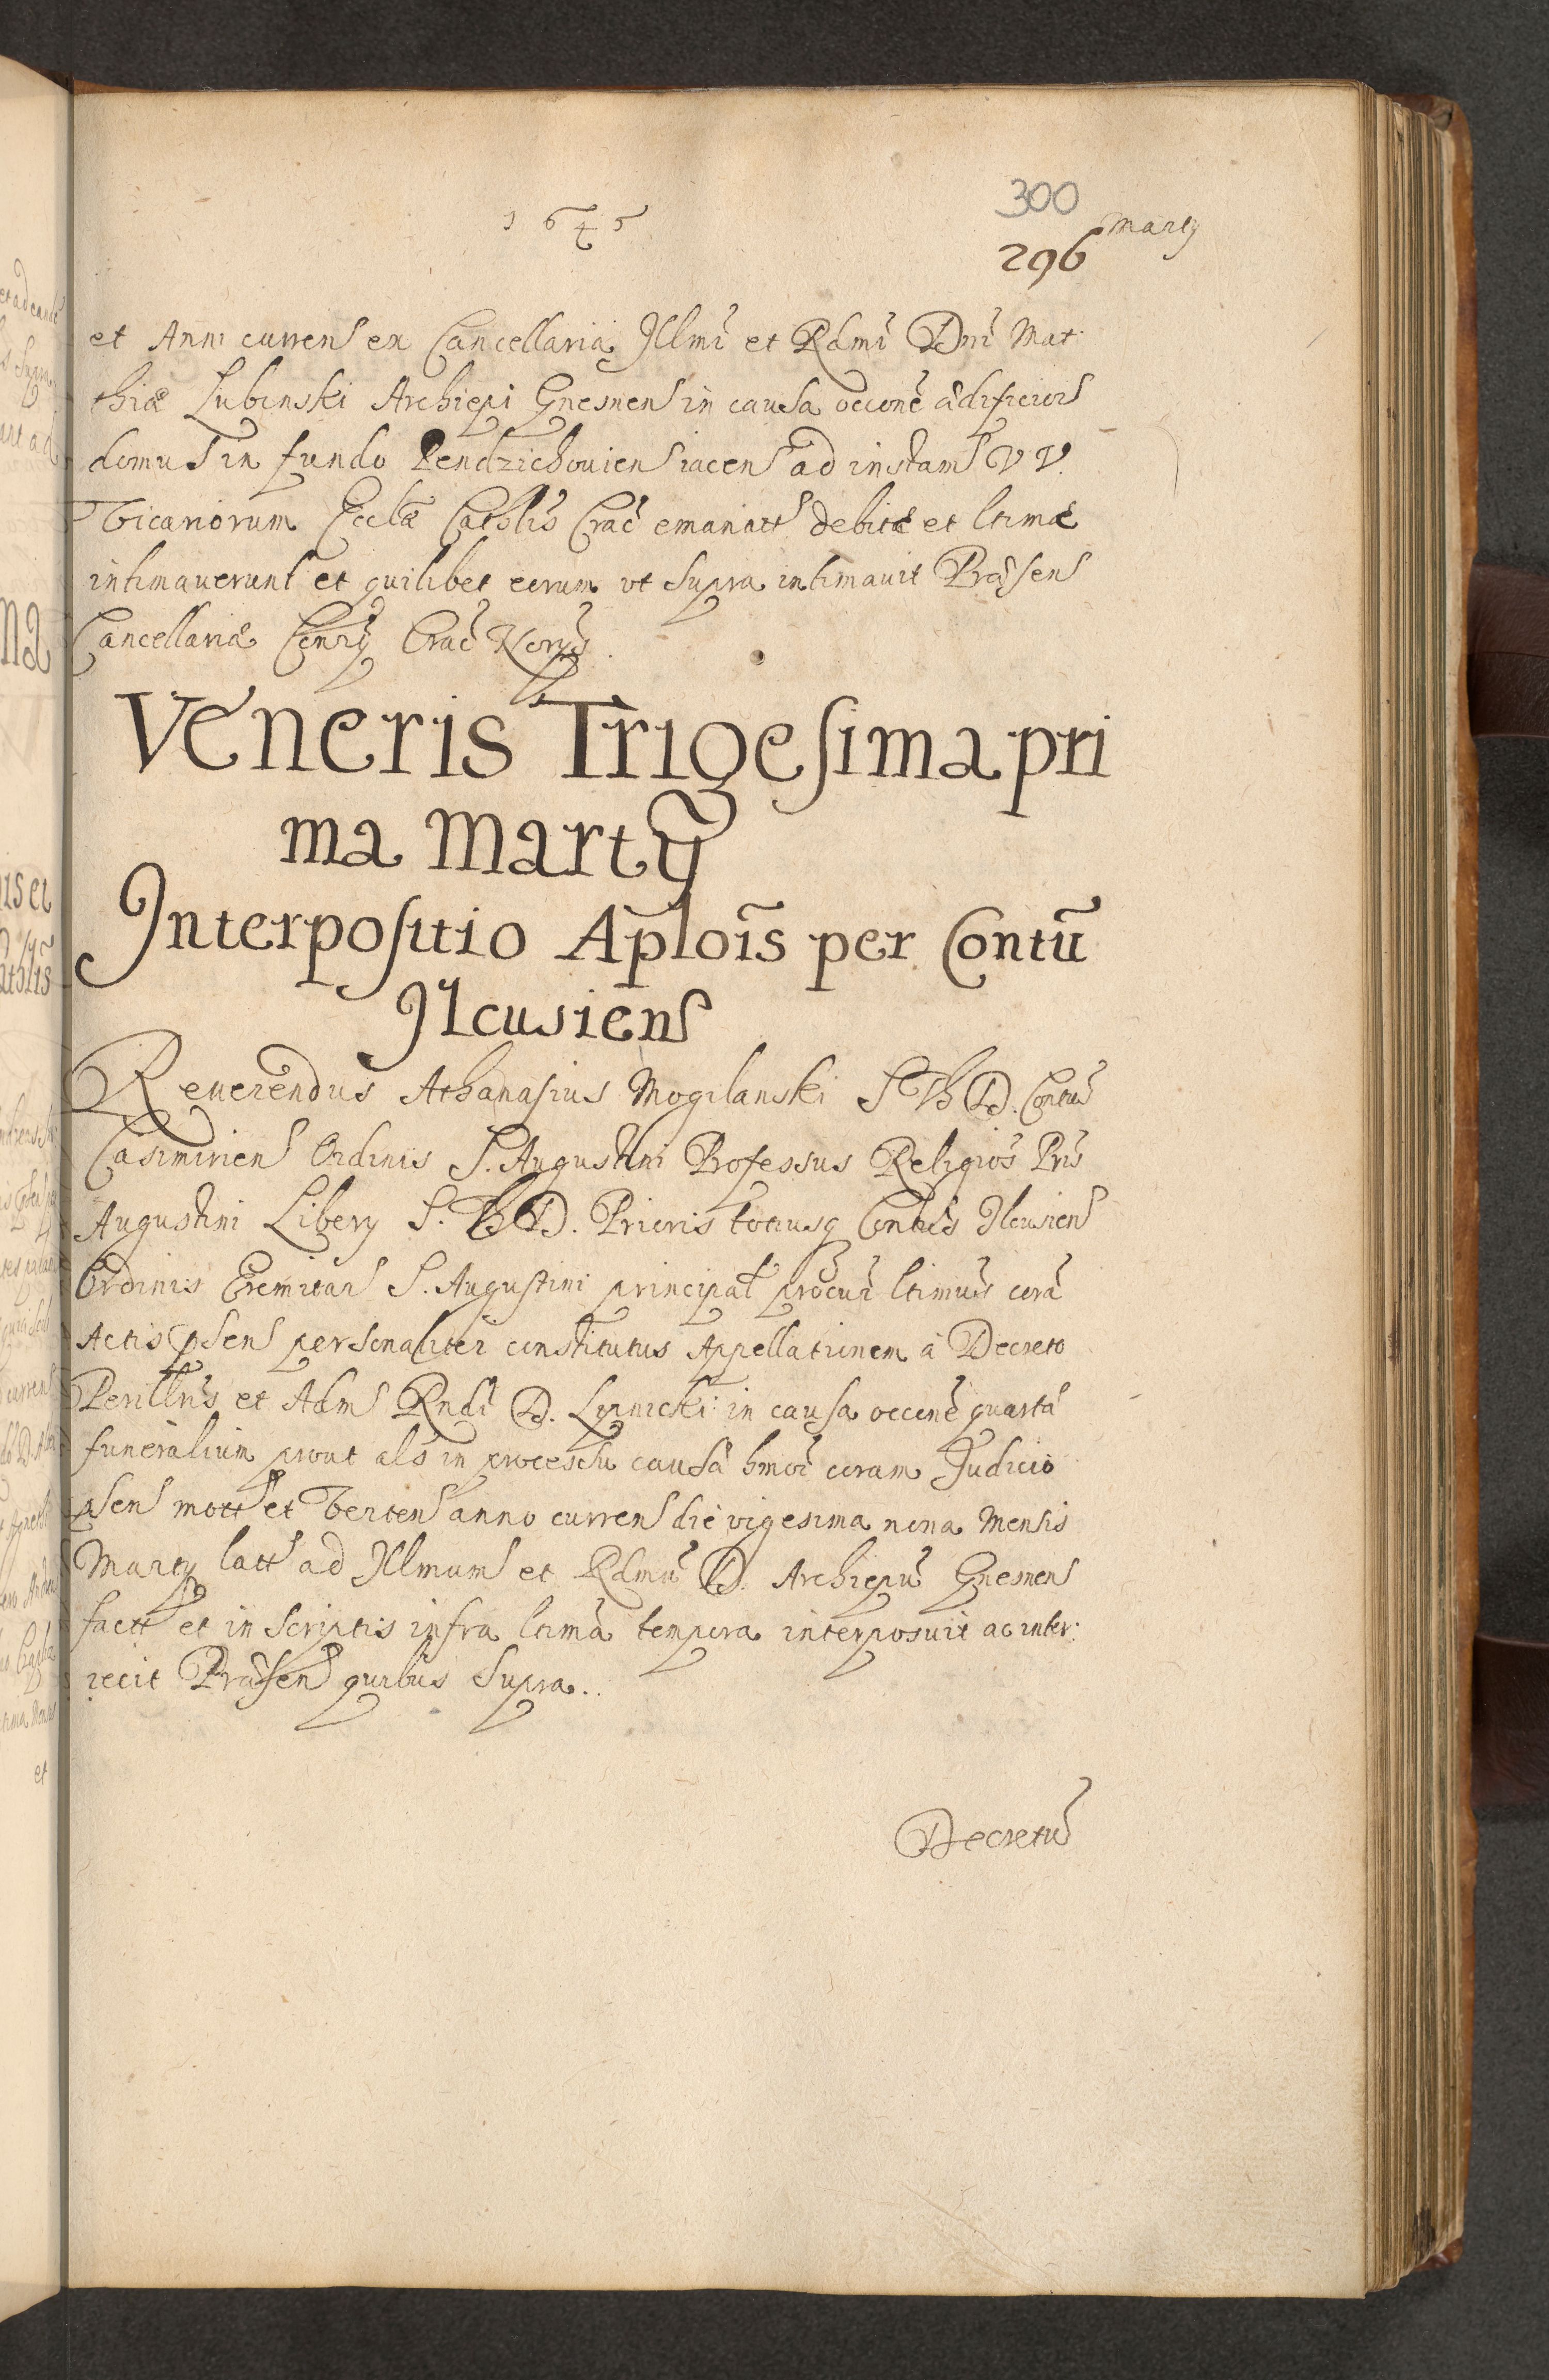 300
1645 Martÿ
296
et Anni currenS ex Cancellaria Jllmi et Rdmi Dni Mat:
thiæ Lubinski Archiepi GnesnenS in causa occone ædificiorS
domus in fundo PendzichouienS iacenS ad instamS VV.
Vicariorum Ecclæ Cathlis Crac emanattS debitæ et ltimæ
intimauerunt et quilibet eorum vt supra intimauit PræsenS
Cancellariæ Conrÿ Crac Norÿs
Veneris Trigesima pri
ma Martÿ
Interpositio Aplois per Contũ
JlcusienS
Reuerendus Athanasius Mogilanski S Th D. Contus
CasimirienS Ordinis S. Augustini Professus Religios Pris
Augustini Libery S. Th D. Prioris totiusq Contus JlcusienS
Ordinis EremitarS S. Augustini principal procur ltimus corã
Actis psenS personaliter constitutus Appellationem à Decreto
Perillris et AdmS Rndi D. Lipnicki in causa occone quartæ
funeralium prout als in processu causæ hmoi coram Judicio
psenS mottS et VertenS anno currenS die vigesima nona Mensis
Martÿ lattS ad JllmumS et Rdmũ D. Archiepũ GnesnenS
facttS et in Scriptis infra ltima tempora interposuit ac inter:
iecit PræsenS quibus Supra.
Decretũ
et